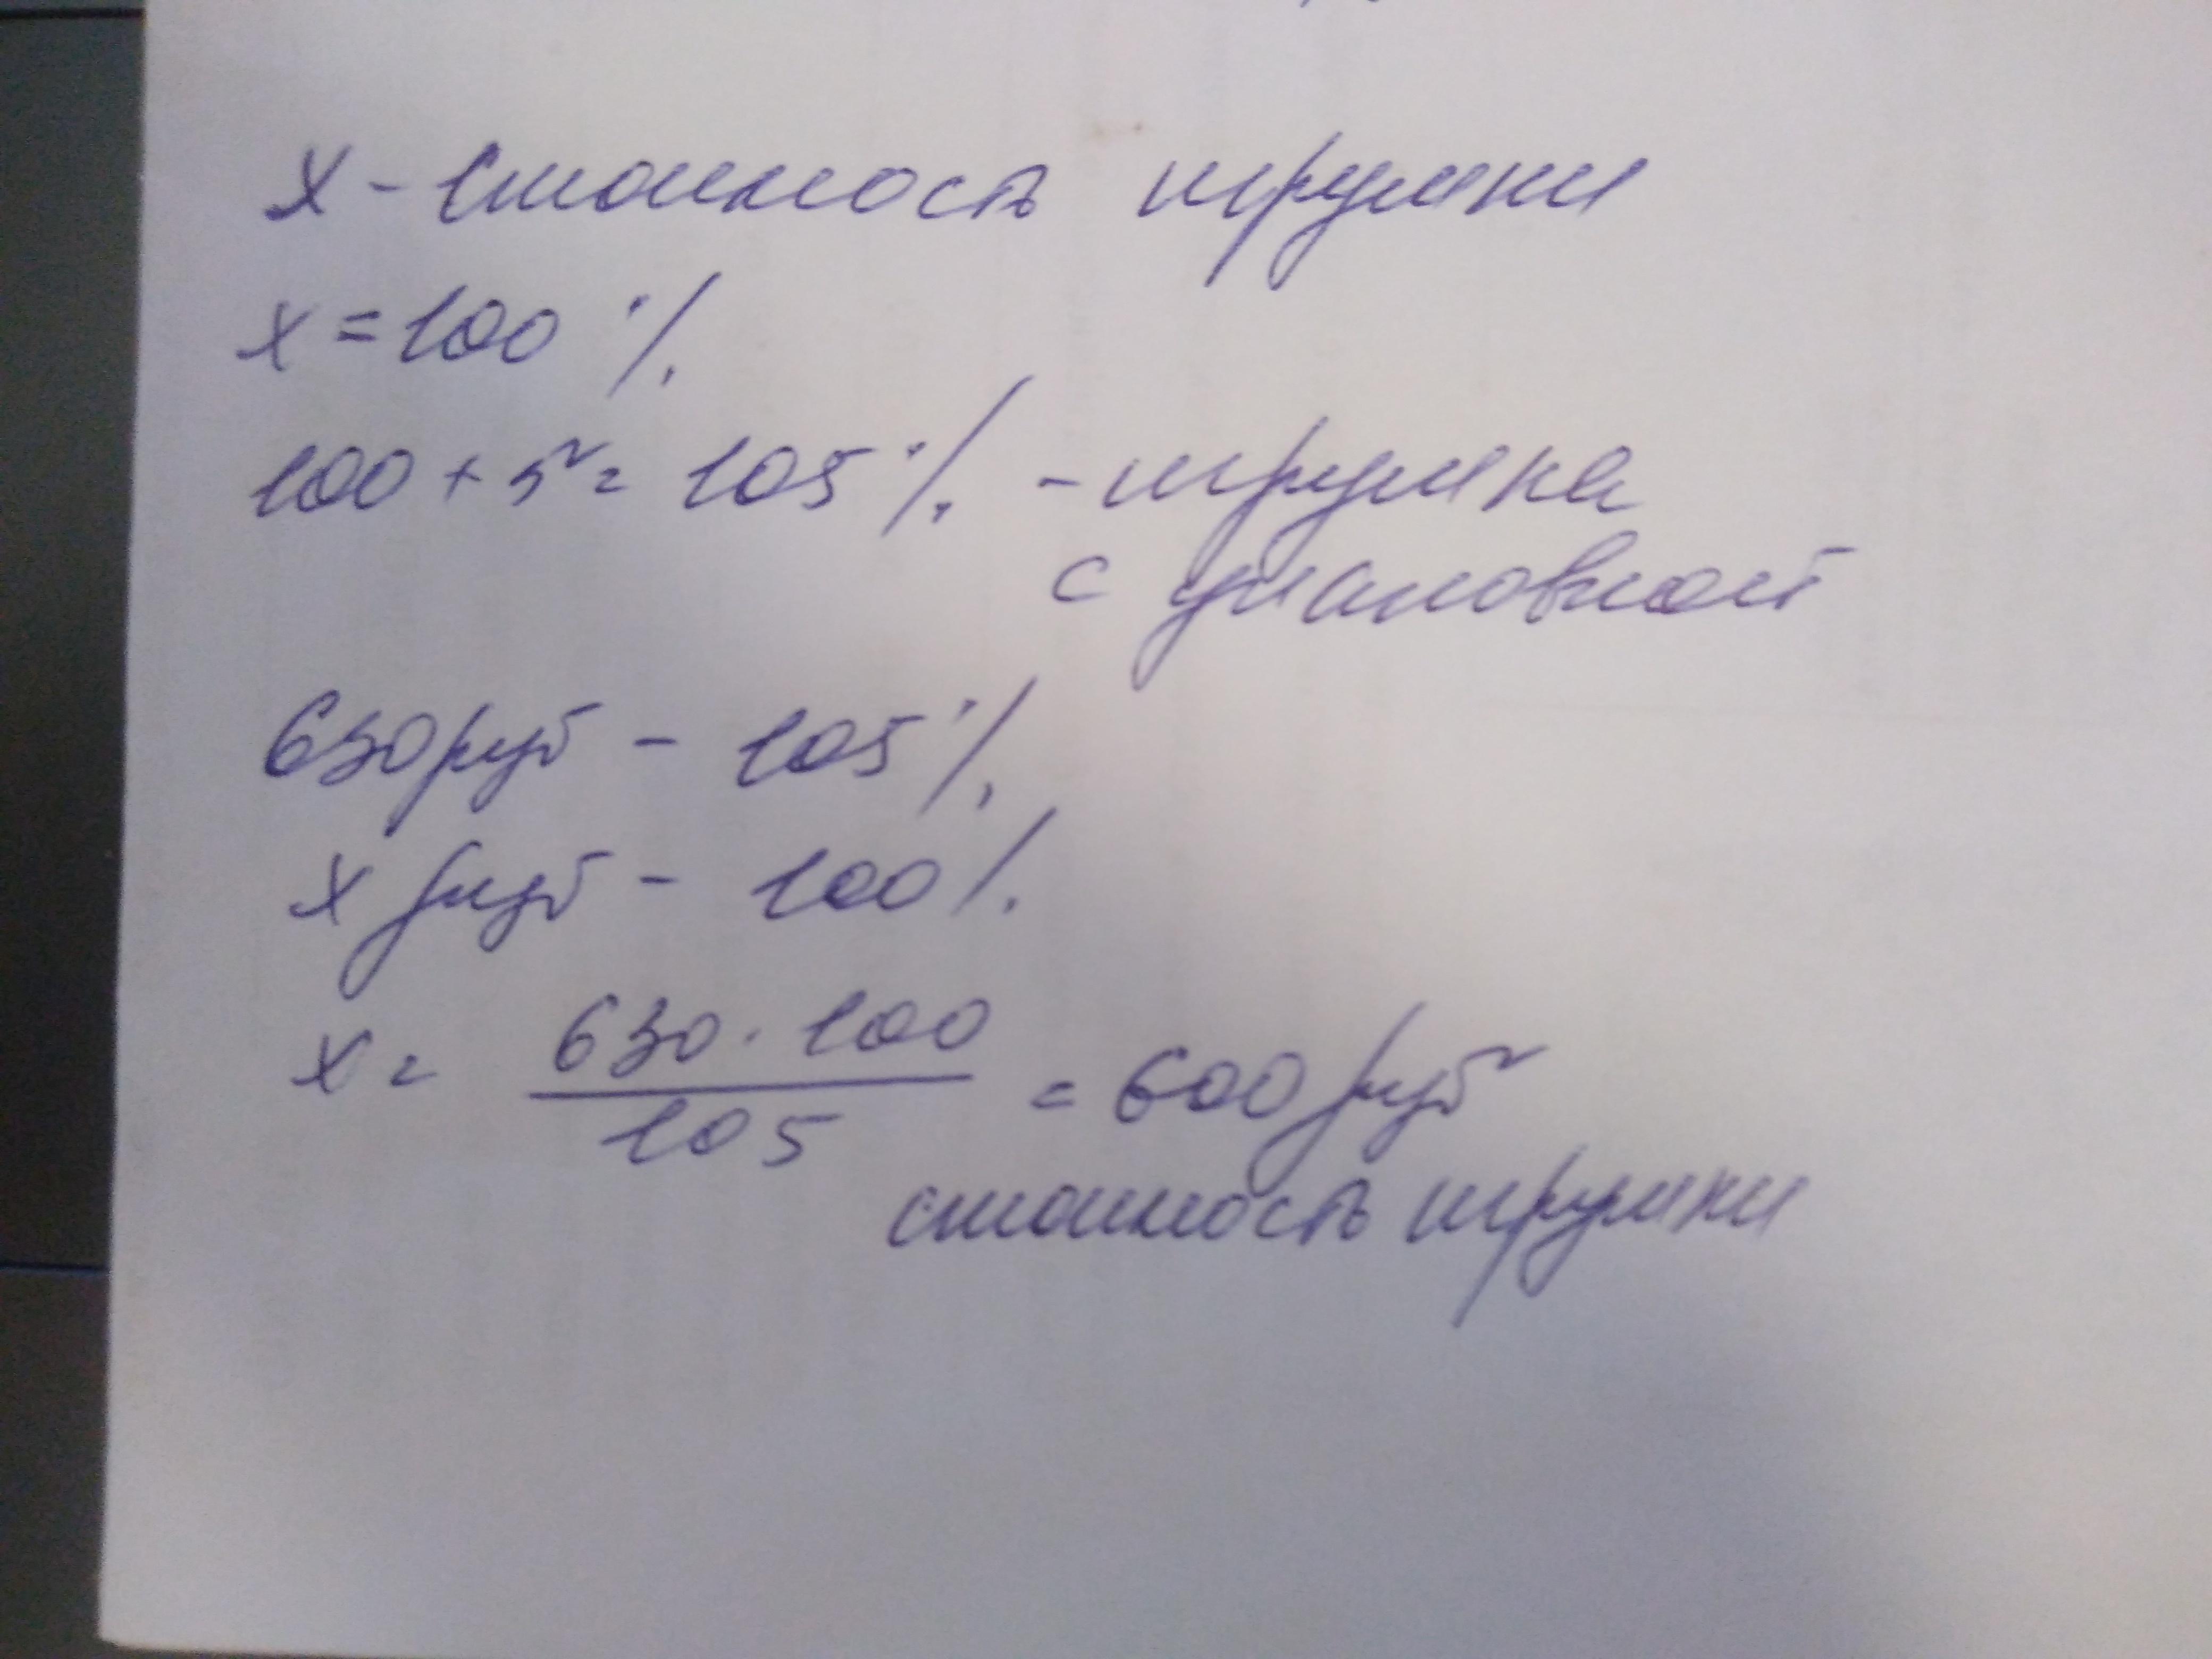 x - стоимость игрушки
x = 100 %
100 + 5 = 105 % - игрушка
с упаковкой
630 руб - 105 %
x руб - 100 %
x = 630 · 100 / 105 = 600 руб
стоимость игрушки